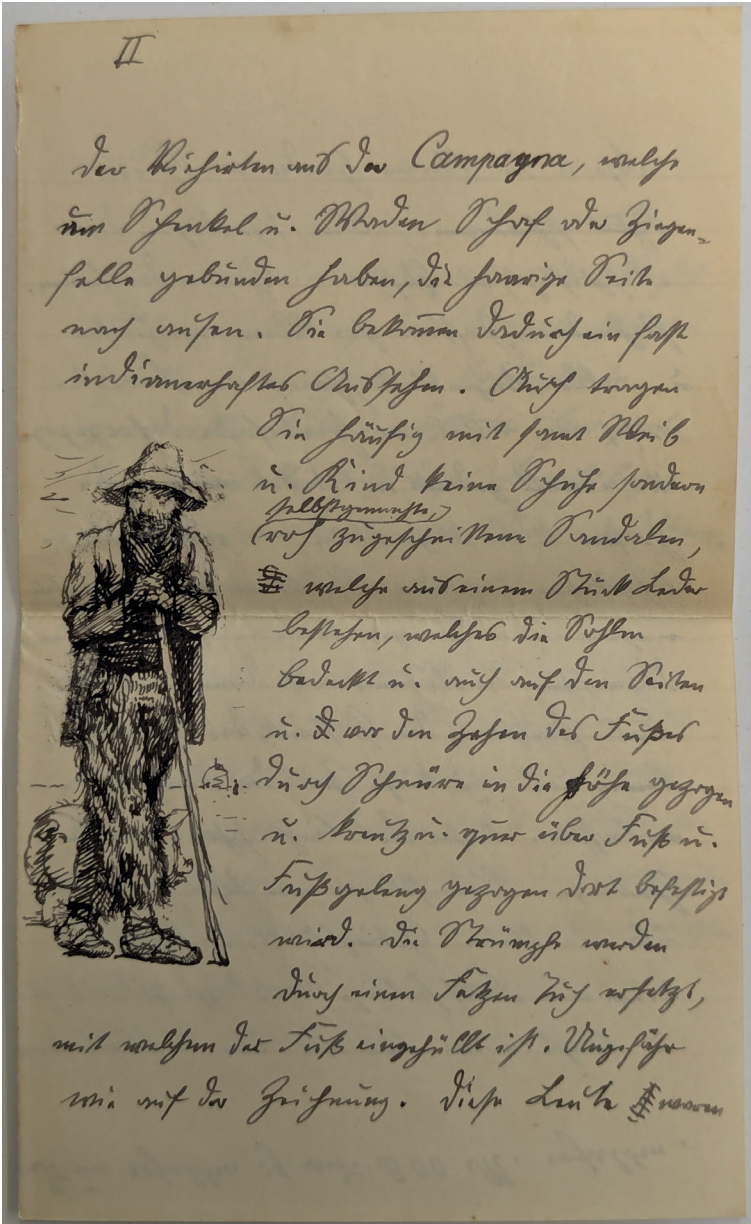 II
der Viehirten aus der Campagna, welche
um Schenkel u. Waden Schaf oder Ziegen-
felle gebunden haben, die haarige Seite
nach ausen. Sie bekom̅en dadurch ein fast
indianerhaftes Aussehen. Auch tragen
Sie häufig mit samt Weib
u. Kind keine Schuhe sondern
selbstgemachte,
roh zugeschnittene Sandalen,
welche aus einem Stück Leder
bestehen, welches die Sohlen
bedeckt u. auch auf den Seiten
u. vor den Zehen des Fußes
durch Schnüre in die Höhe gezogen
u. kreutz u. quer über Fuß u.
Fußgeleng gezogen dort befestigt
wird. Die Strümpfe werden
durch einen Fetzen Tuch ersetzt,
mit welchem der Fuß eingehüllt ist. Ungefähr
wie auf der Zeichnung. Diese Leute waren